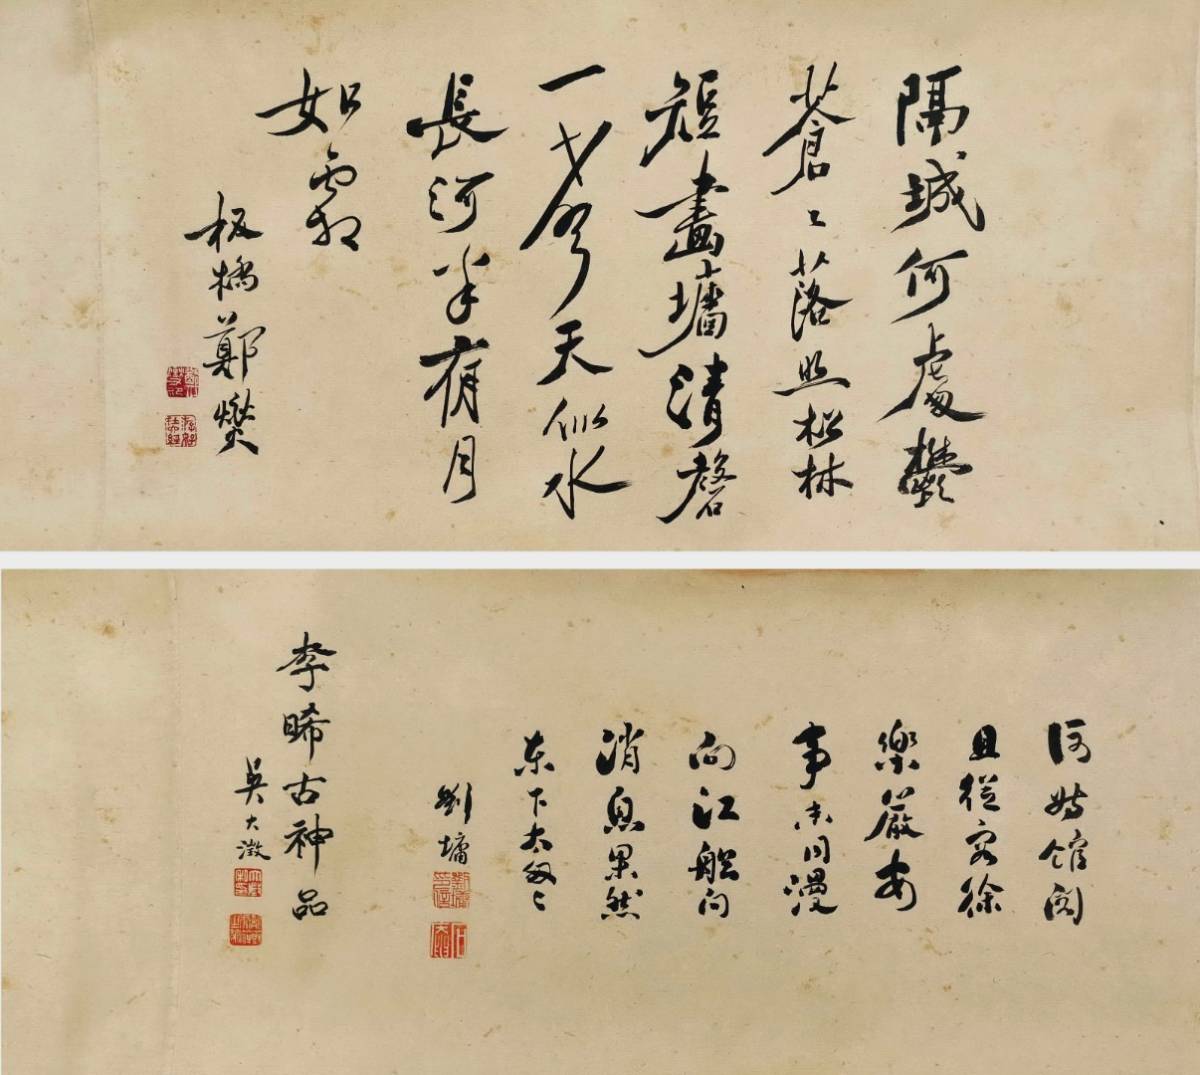 隔城何處鬱
蒼〻落照松林
短畫墻清磬
一聲天似水
長河半有月
如霜
板橋鄭燮
何妨館閣
且從容徐
樂嚴安
事未同漫
向江船问
消息果然
东下太匆〻
劉墉
李晞古神品
吳大澂